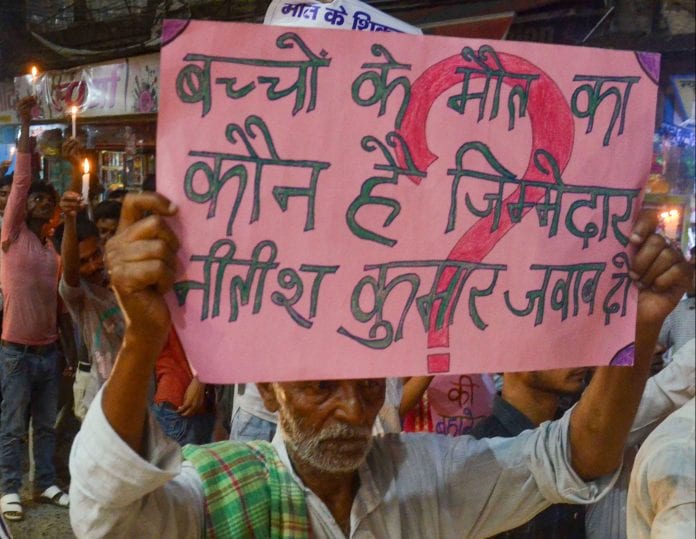 मौत के
बच्चों के मौत का
कौन है जिम्मेदार
नीतीश कुमार जवाब दो
की